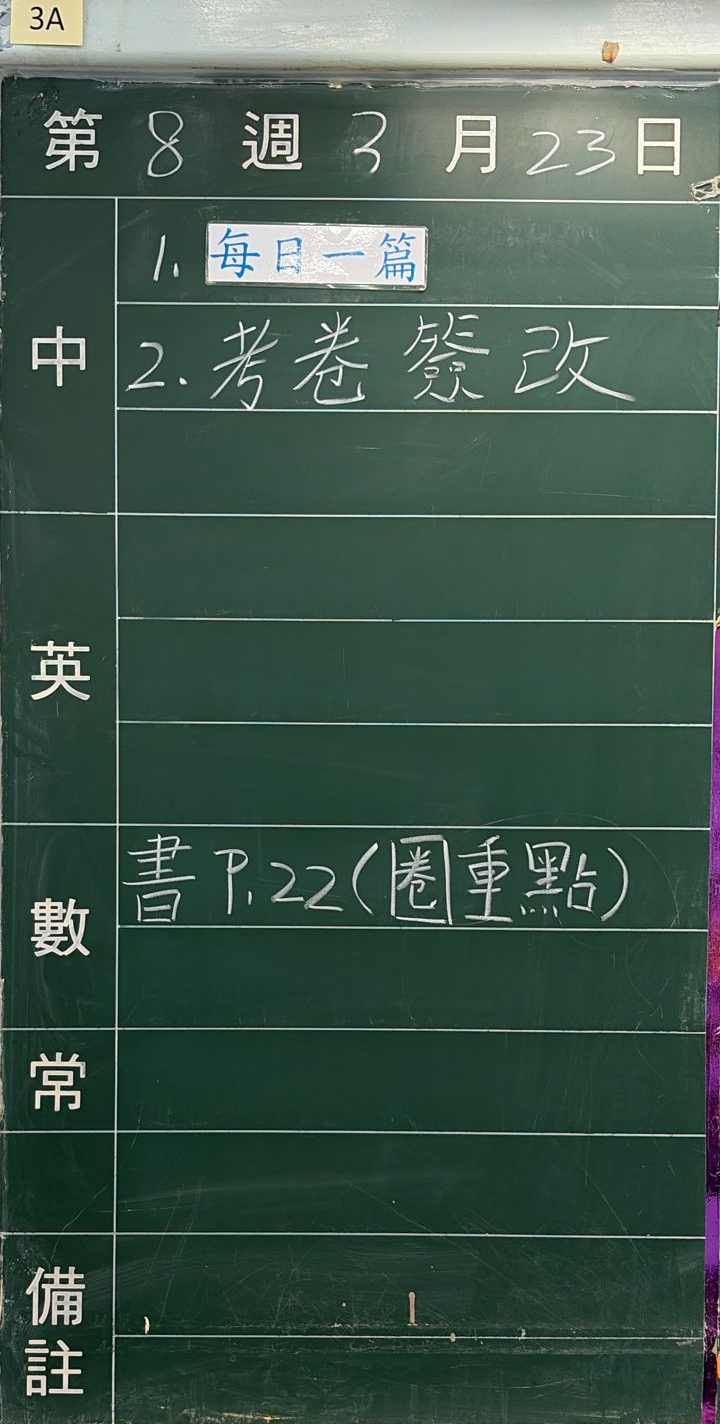 3A
第 8 週 3 月 23 日
中
1. 每日一篇
2. 考卷簽改
英
數
書 P.22(圈重點)
常
備註